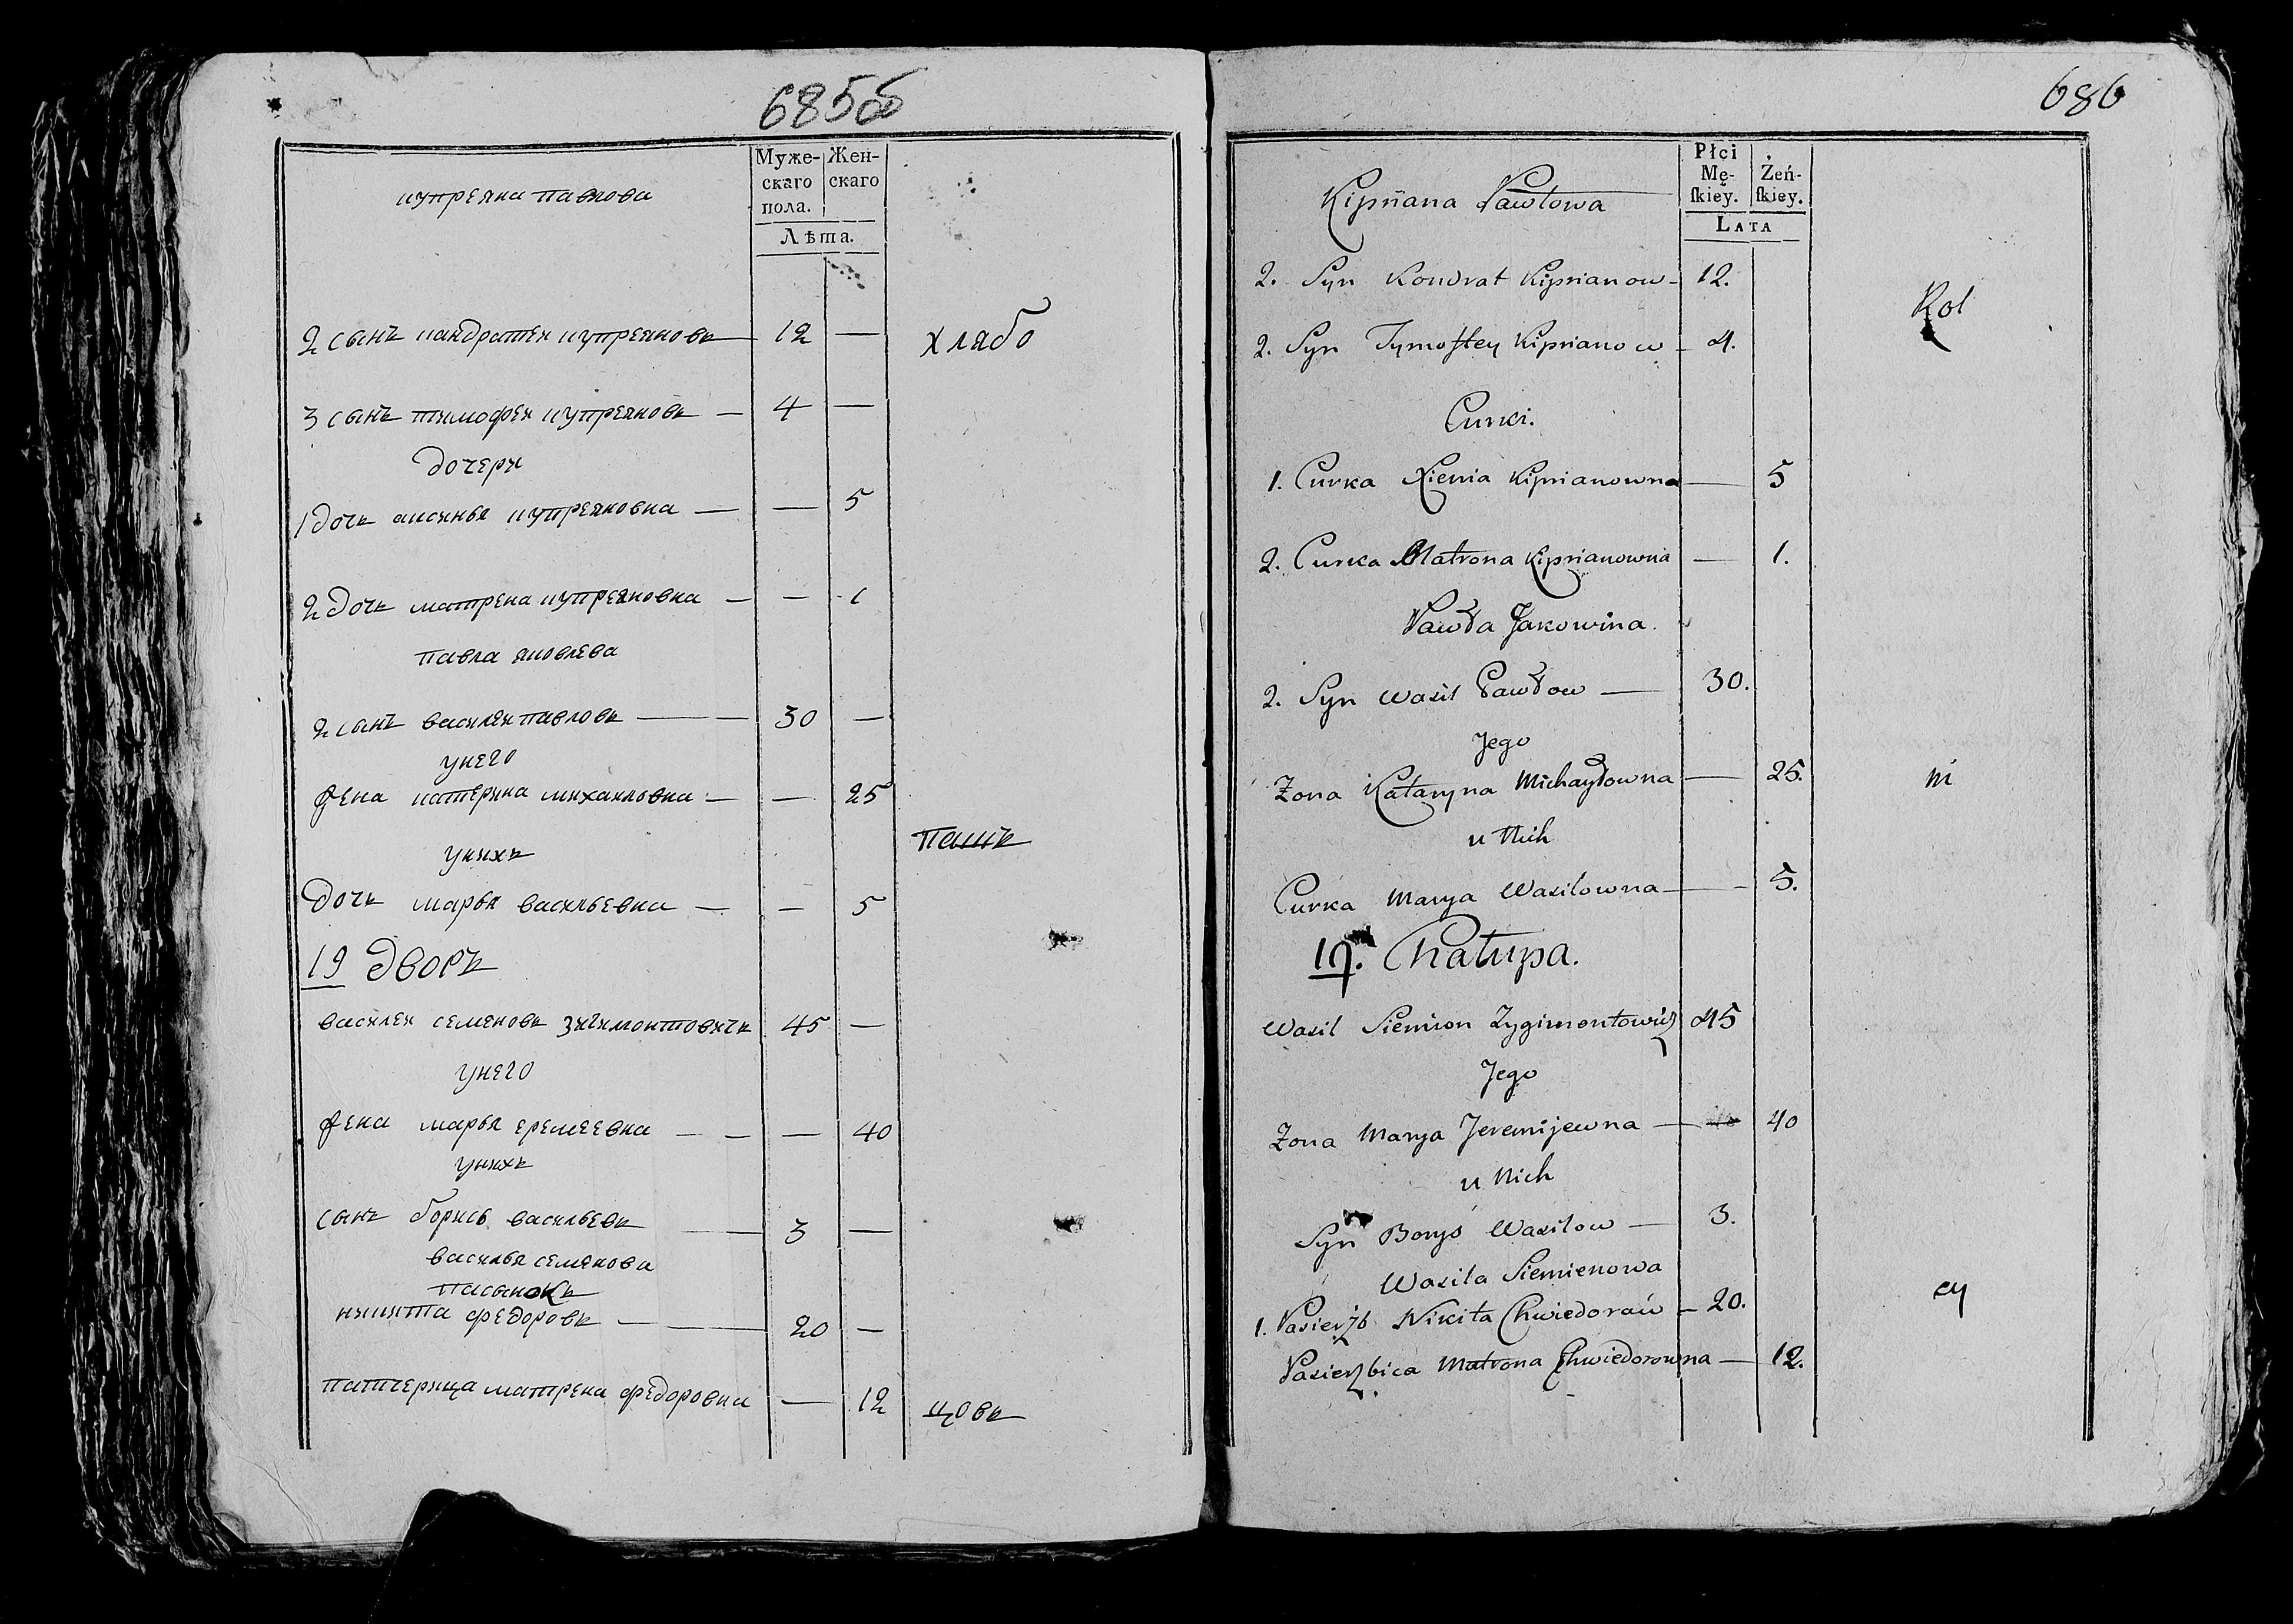 685об
Муже-скаго пола. Жен-скаго
Лѣта.
купреяна павлова
2 сынъ кандратеи купреяновъ — 12 —
хлябо
3 сынъ тимофеи купреяновъ — 4 —
дочери
1 дочь аксинья купреяновна — — 5
2 дочь матрена купреяновна — — 1
павла яковлева
2 сынъ василеи павловъ — 30 —
унего
жена катерина михаиловна — — 25
пашъ
унихъ
дочь марья васильевна — — 5
19 дворъ
василеи семеновъ зигимонтовичъ 45 —
унего
жена марья еремеевна — — — 40
унихъ
сынъ борисъ васильевъ — 3 —
василья семенова
пасынокъ
никита федоровъ — 20 —
патчерица матрена федоровна — 12
цовъ
686
Płci Mę-skiey. Żeń-skiey.
Lata
Kipriana Pawłowa
2. Syn Kondrat Kiprianow - 12.
Rol
2. Syn Tymoftey Kiprianow - 4.
Curki.
1. Curka Xienia Kiprianowna — 5
2. Curka Matrona Kiprianowna — 1.
Pawła Jakowina.
2. Syn Wasil Pawłow — 30.
Jego
Zona Kataryna Michayłowna — 25.
ni
u Nich
Curka Marya Wasilowna — 5.
19. Chałupa.
Wasil Siemion Zygimontowicz 45
Jego
Zona Marya Jeremijewna — 40
u Nich
Syn Borys Wasilow — 3.
Wasila Siemienowa
cy
1. Pasierzb Nikita Chwiedorow — 20.
Pasierzbica Matrona Chwiedorowna — 12.